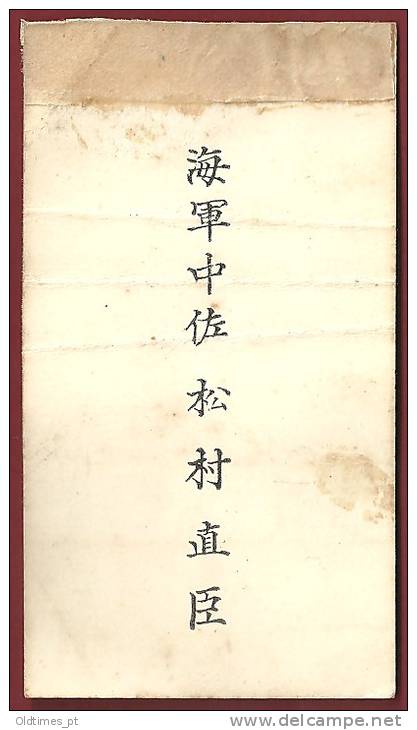 海軍中佐 松村直臣
Oldtimes_pt
delcampe.net